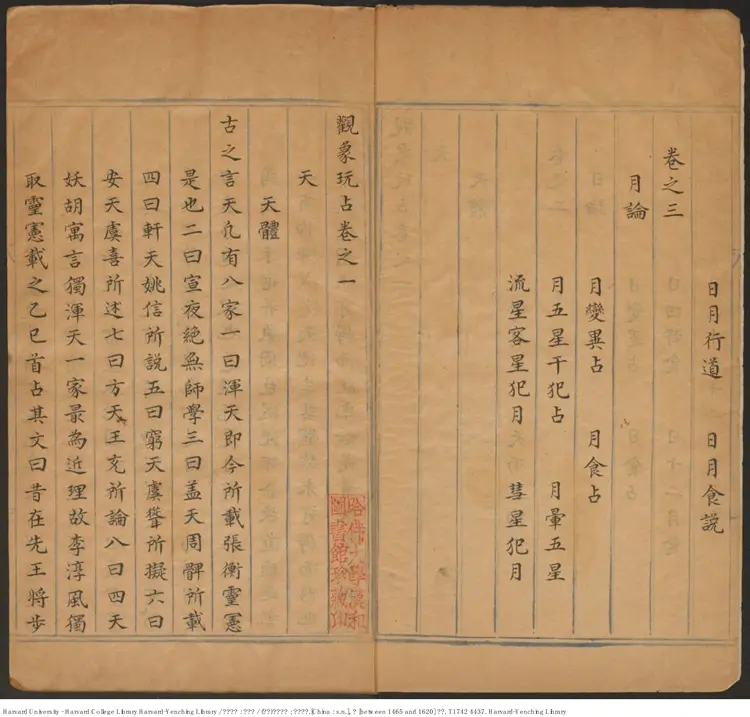 日月行道 日月食説
卷之三
月論
月變異占 月食占
月五星干犯占 月暈五星
流星客星犯月 彗星犯月
觀象玩占卷之一
天
天體
古之言天凢有八家一曰渾天即今所載張衡靈憲
是也二曰宣夜絶無師學三曰盖天周髀所載
四曰軒天姚信所説五曰窮天虞聳所擬六曰
安天虞喜所述七曰方天王充所論八曰四天
妖胡寓言獨渾天一家最為近理故李淳風獨
取靈憲載之乙巳首占其文曰昔在先王將步
哈佛大學漢和
圖書館珍藏印
Harvard University - Harvard College Library Harvard-Yenching Library / ???? : ??? / (???)???? ; ????. [China : s.n.], ? [between 1465 and 1620] ??. T1742 4437. Harvard-Yenching Library